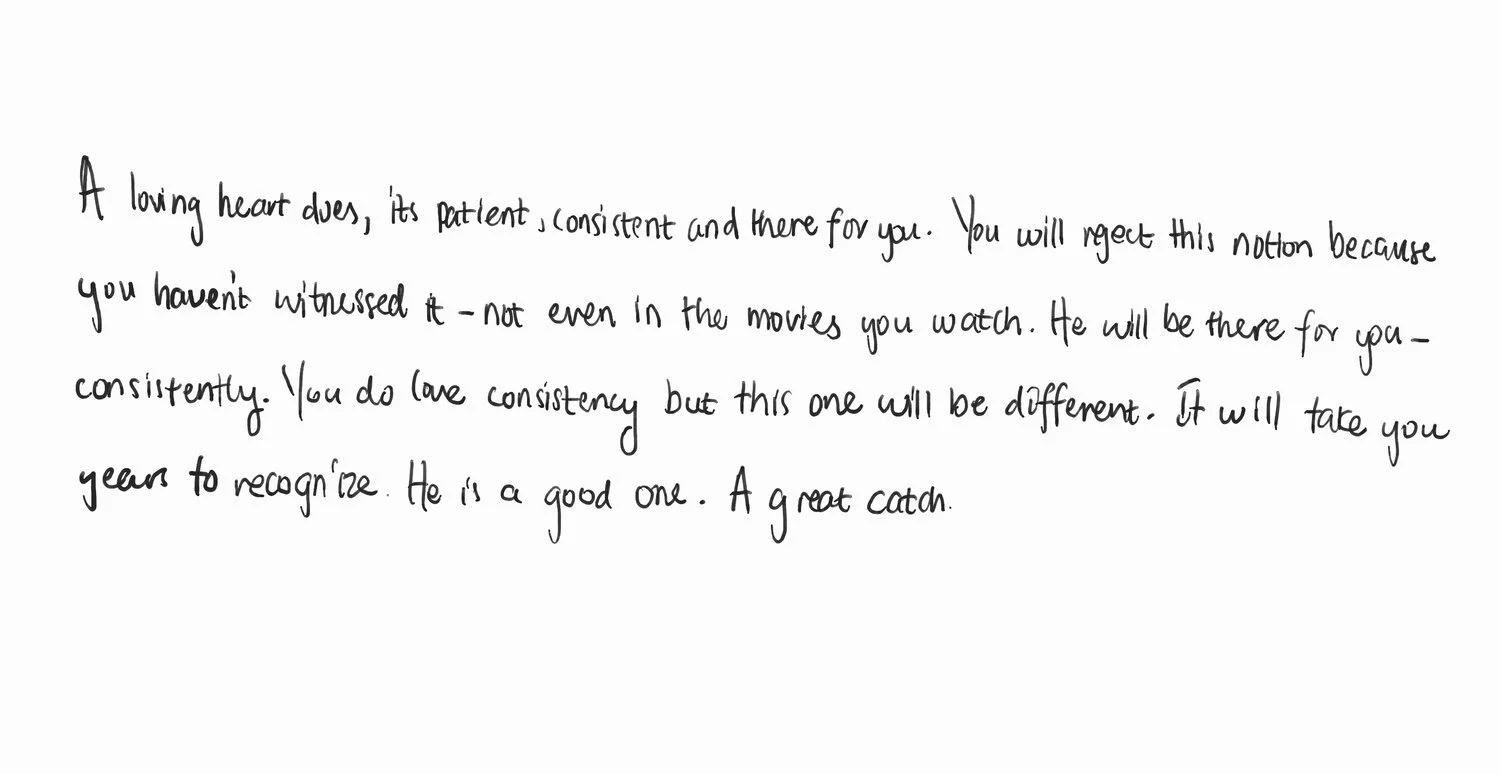 A loving heart does, its patient, consistent and there for you. You will reject this notion because
you haven't witnessed it - not even in the movies you watch. He will be there for you -
consistently. You do love consistency but this one will be different. It will take you
years to recognize. He is a good one. A great catch.